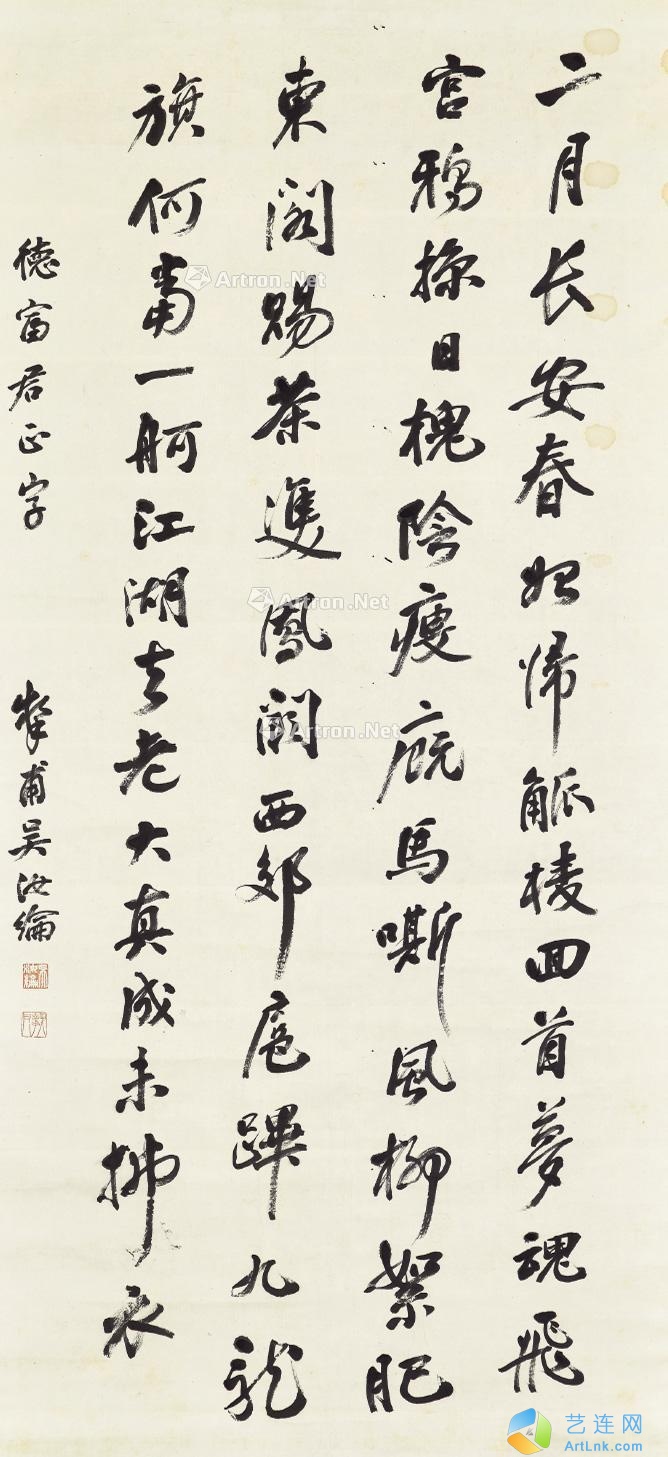 二月长安春始歸觚棱回首夢魂飛
宮鴉掠日槐陰瘦廄馬嘶風柳絮肥
東閣賜茶雙鳳闕西郊扈蹕九龍
旂何當一舸江湖去老大真成未拂衣
德富君正字
摯甫吳汝綸
Artron.Net
Artron.Net
Artron.Net
艺连网
ArtLnk.com